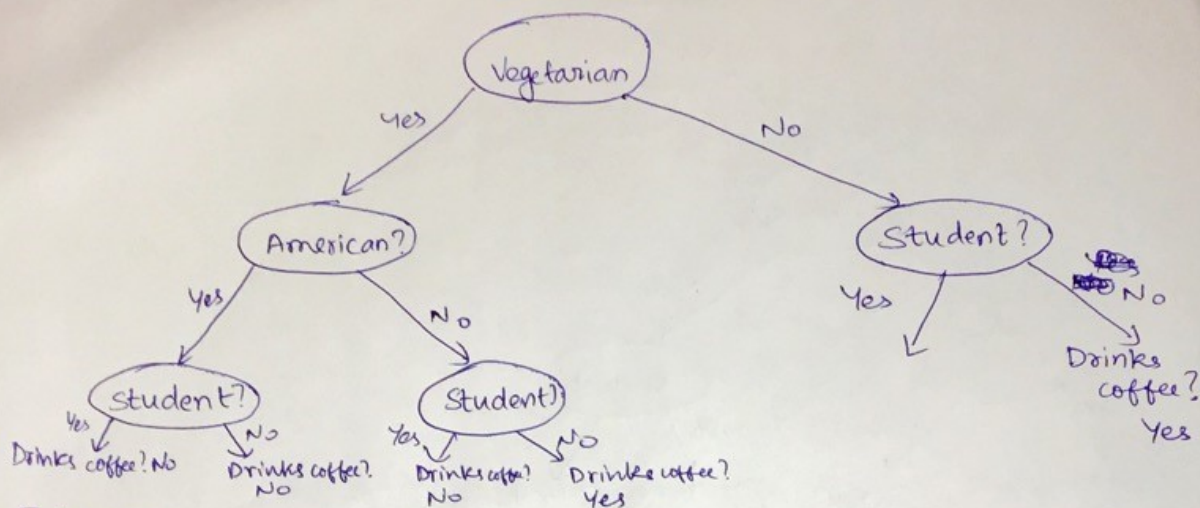 Vegetarian
Yes
No
American?
Student?
Yes
No
Yes
No
Student?
Student?
Yes
No
Yes
No
Drinks coffee? No
Drinks coffee?
No
Drinks coffee?
No
Drinks coffee?
Yes
Drinks
coffee?
Yes